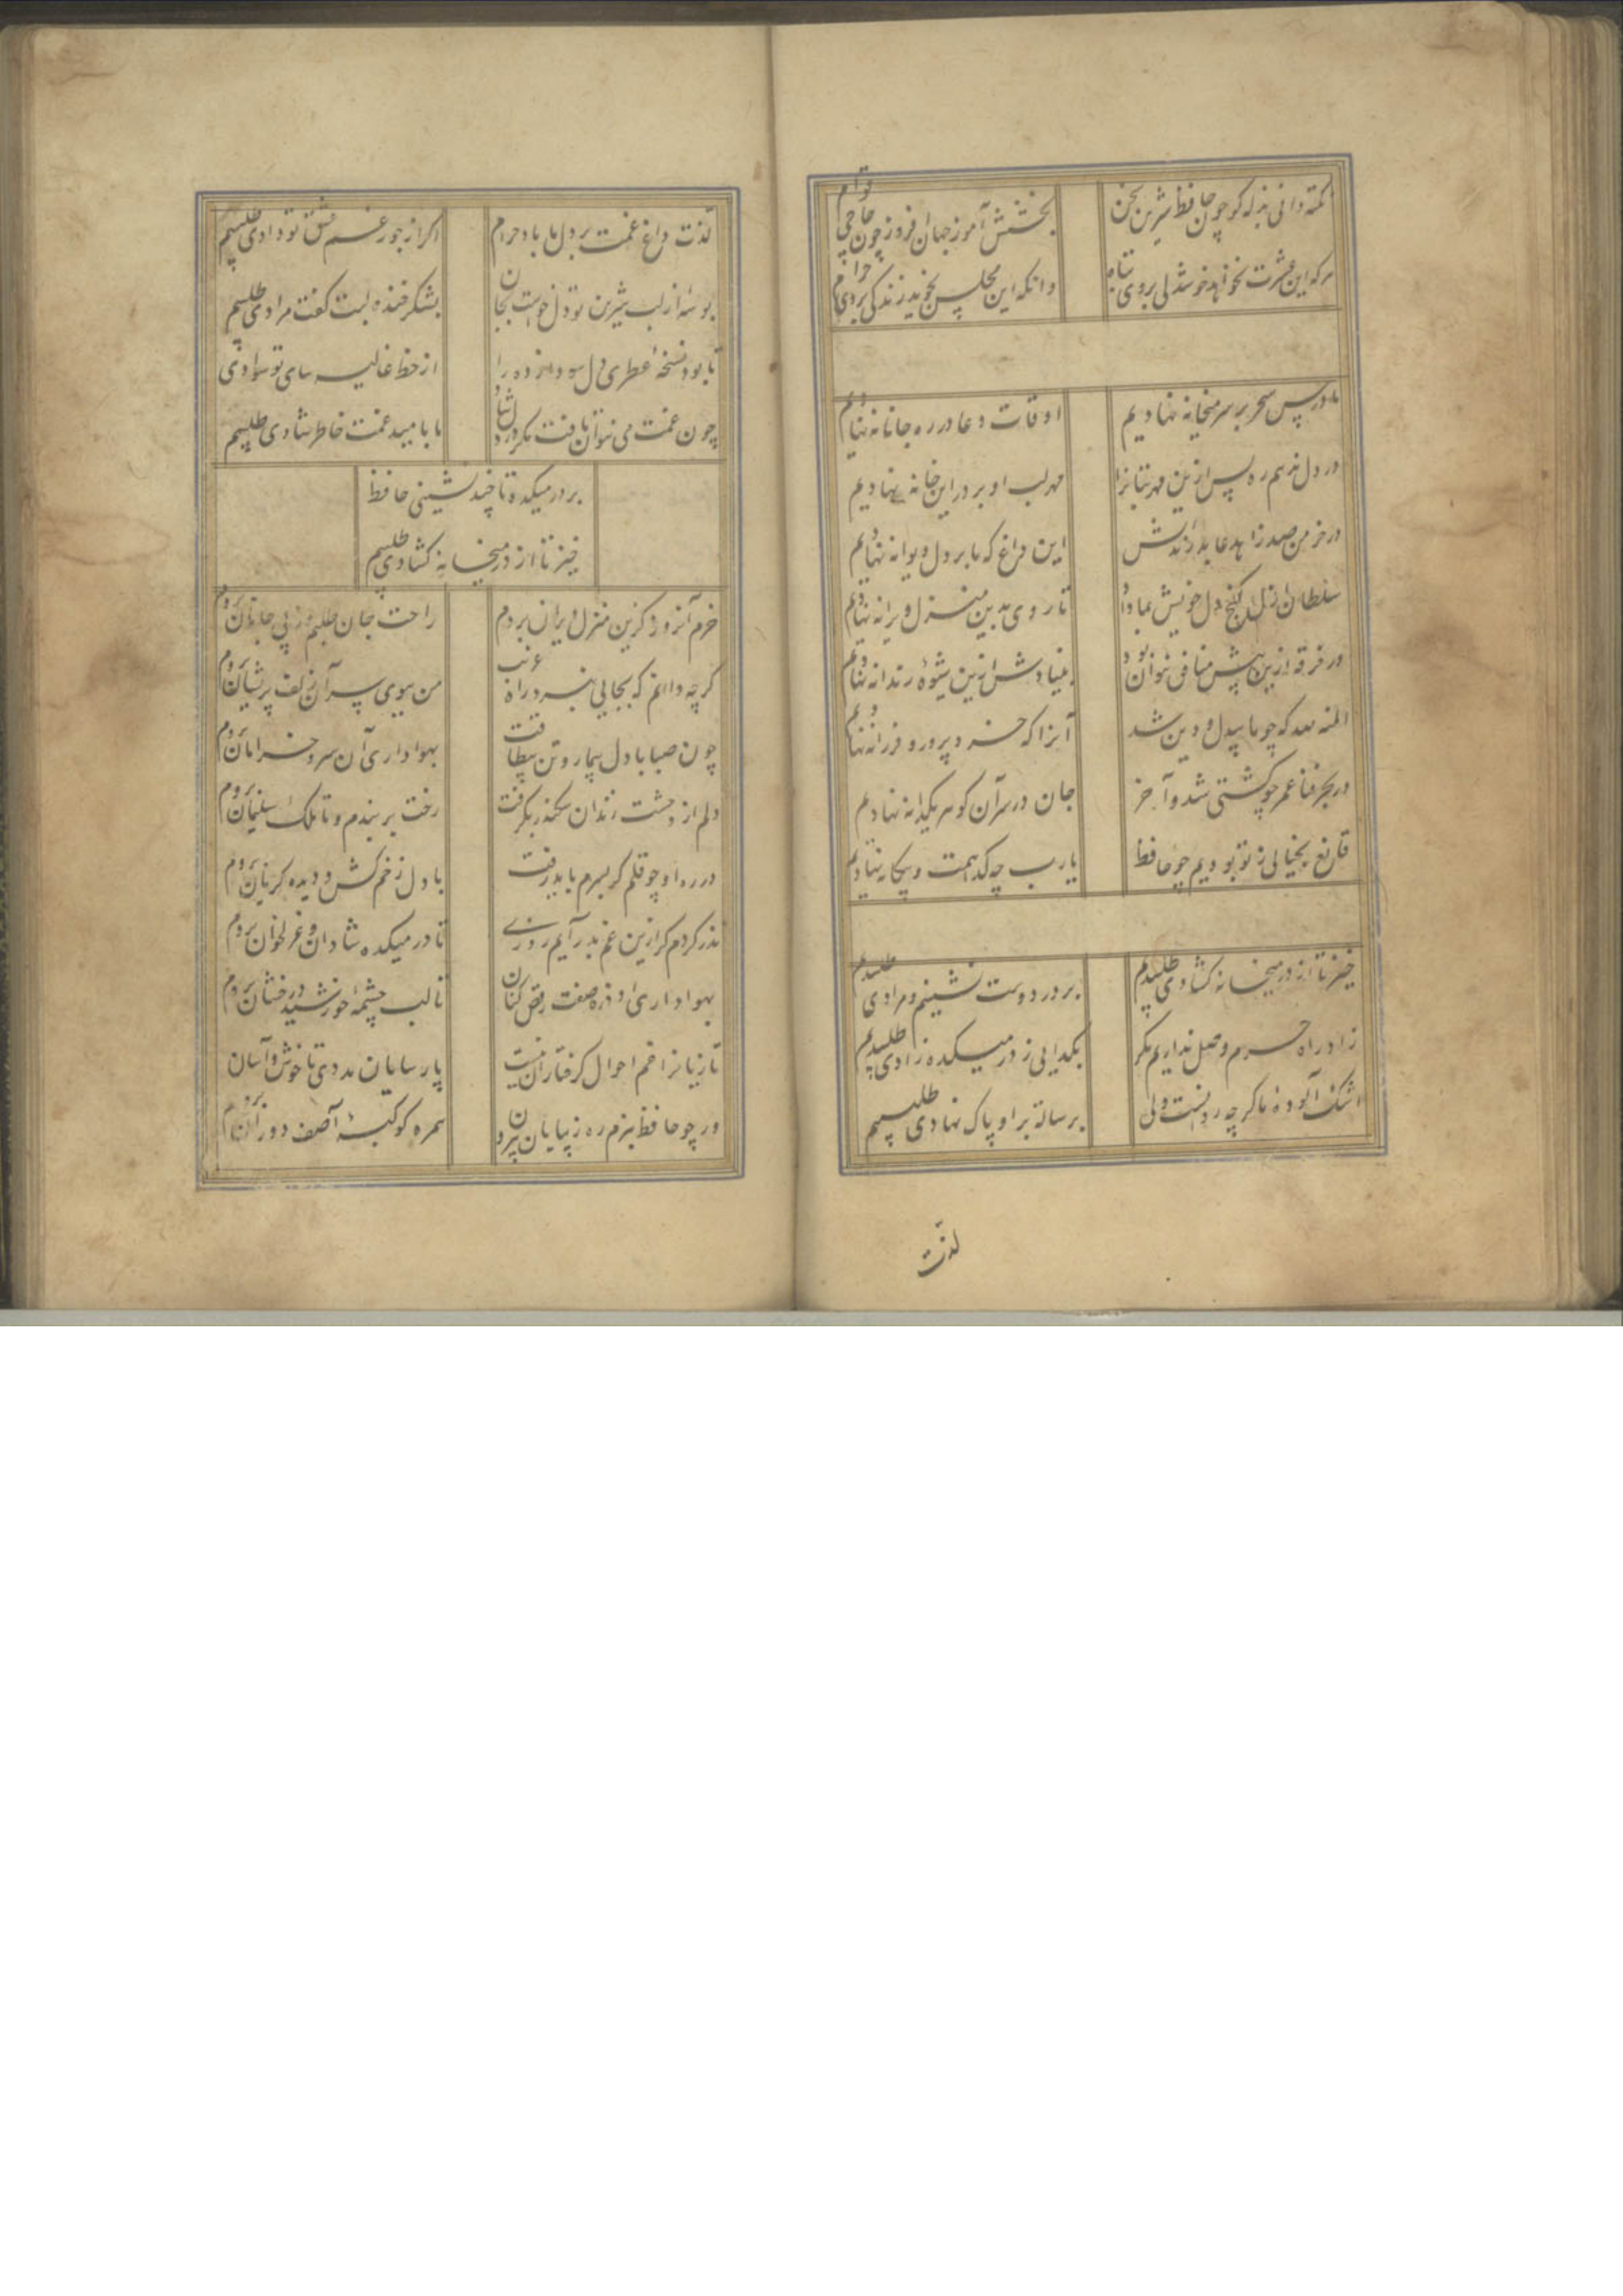 نکته دانی بذله کو چون حافظ شیرین سخن
بخشش آموز جهان افروز چون حاجی قوام
هرکه این عشرت نخواهد خوشدلی بروی تباه
وانکه این مجلس نجوید زندکی بروی حرام
ما درس سحر بر سر میخانه نهادیم
اوقات دعا در ره جانانه نهادیم
در دل ندهم ره پس ازین مهر بتانرا
مهر لب او بر در این خانه نهادیم
در خرمن صد زاهد عاقل زند آتش
این داغ که ما بر دل دیوانه نهادیم
سلطان ازل کنج دل خویش بما داد
تا روی بدین منزل ویرانه نهادیم
در خرقه ازین بیش منافق نتوان بود
بنیادش ازین شیوهٔ رندانه نهادیم
المنه لله که چو ما بیدل و دین شد
آنرا که خرد پرور و فرزانه نهادیم
در بحر فنا عمر چو کشتی شد و آخر
جان در سر آن کوهر یکدانه نهادیم
قانع بخیالی ز تو بودیم چو حافظ
یارب چه کدا همت و بیکانه نهادیم
خیز تا از در میخانه کشادی طلبیم
بر در دوست نشینیم و مرادی طلبیم
زاد راه حرم وصل نداریم مکر
بکدایی ز در میکده زادی طلبیم
اشک آلودهٔ ما کرچه روانست ولی
برسالت بر او پاک نهادی طلبیم
لذت
لذت داغ غمت بر دل ما باد حرام
اکر از جور غم عشق تو دادی طلبیم
بوسهٔ از لب شیرین تو دل خواست بجان
بشکر خنده لبت کفت مرادی طلبیم
تا بود نسخهٔ عطری دل سودازده را
از خط غالیه سای تو سوادی
چون غمت می نتوان یافت مکر در دل شاد
ما بامید غمت خاطر شادی طلبیم
بر در میکده تا چند نشینی حافظ
خیز تا از در میخانه کشادی طلبیم
خرم آنروز کزین منزل ویران بروم
راحت جان طلبم وز پی جانان بروم
کرچه دانم که بجایی نبرد راه غریب
من ببوی سر آن زلف پریشان بروم
چون صبا با دل بیمار و تن بیطاقت
بهواداری آن سرو خرامان بروم
دلم از وحشت زندان سکندر بکرفت
رخت بر بندم و تا ملک سلیمان بروم
در ره او چو قلم کر بسرم باید رفت
با دل زخم کش و دیده کریان بروم
نذر کردم کر ازین غم بدر آیم روزی
تا در میکده شادان و غزلخوان بروم
بهواداری او ذره صفت رقص کنان
تا لب چشمهٔ خورشید درخشان بروم
تازیانرا غم احوال کرفتاران نیست
پارسایان مددی تا خوش و آسان بروم
ور چو حافظ نبرم ره ز بیابان بیرون
همره کوکبهٔ آصف دوران بروم